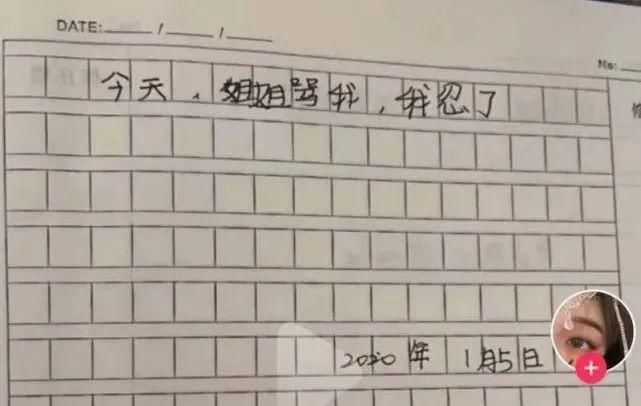 DATE:____/____/____
No:
今天，姐姐骂我，我忍了
2020年 1月5日